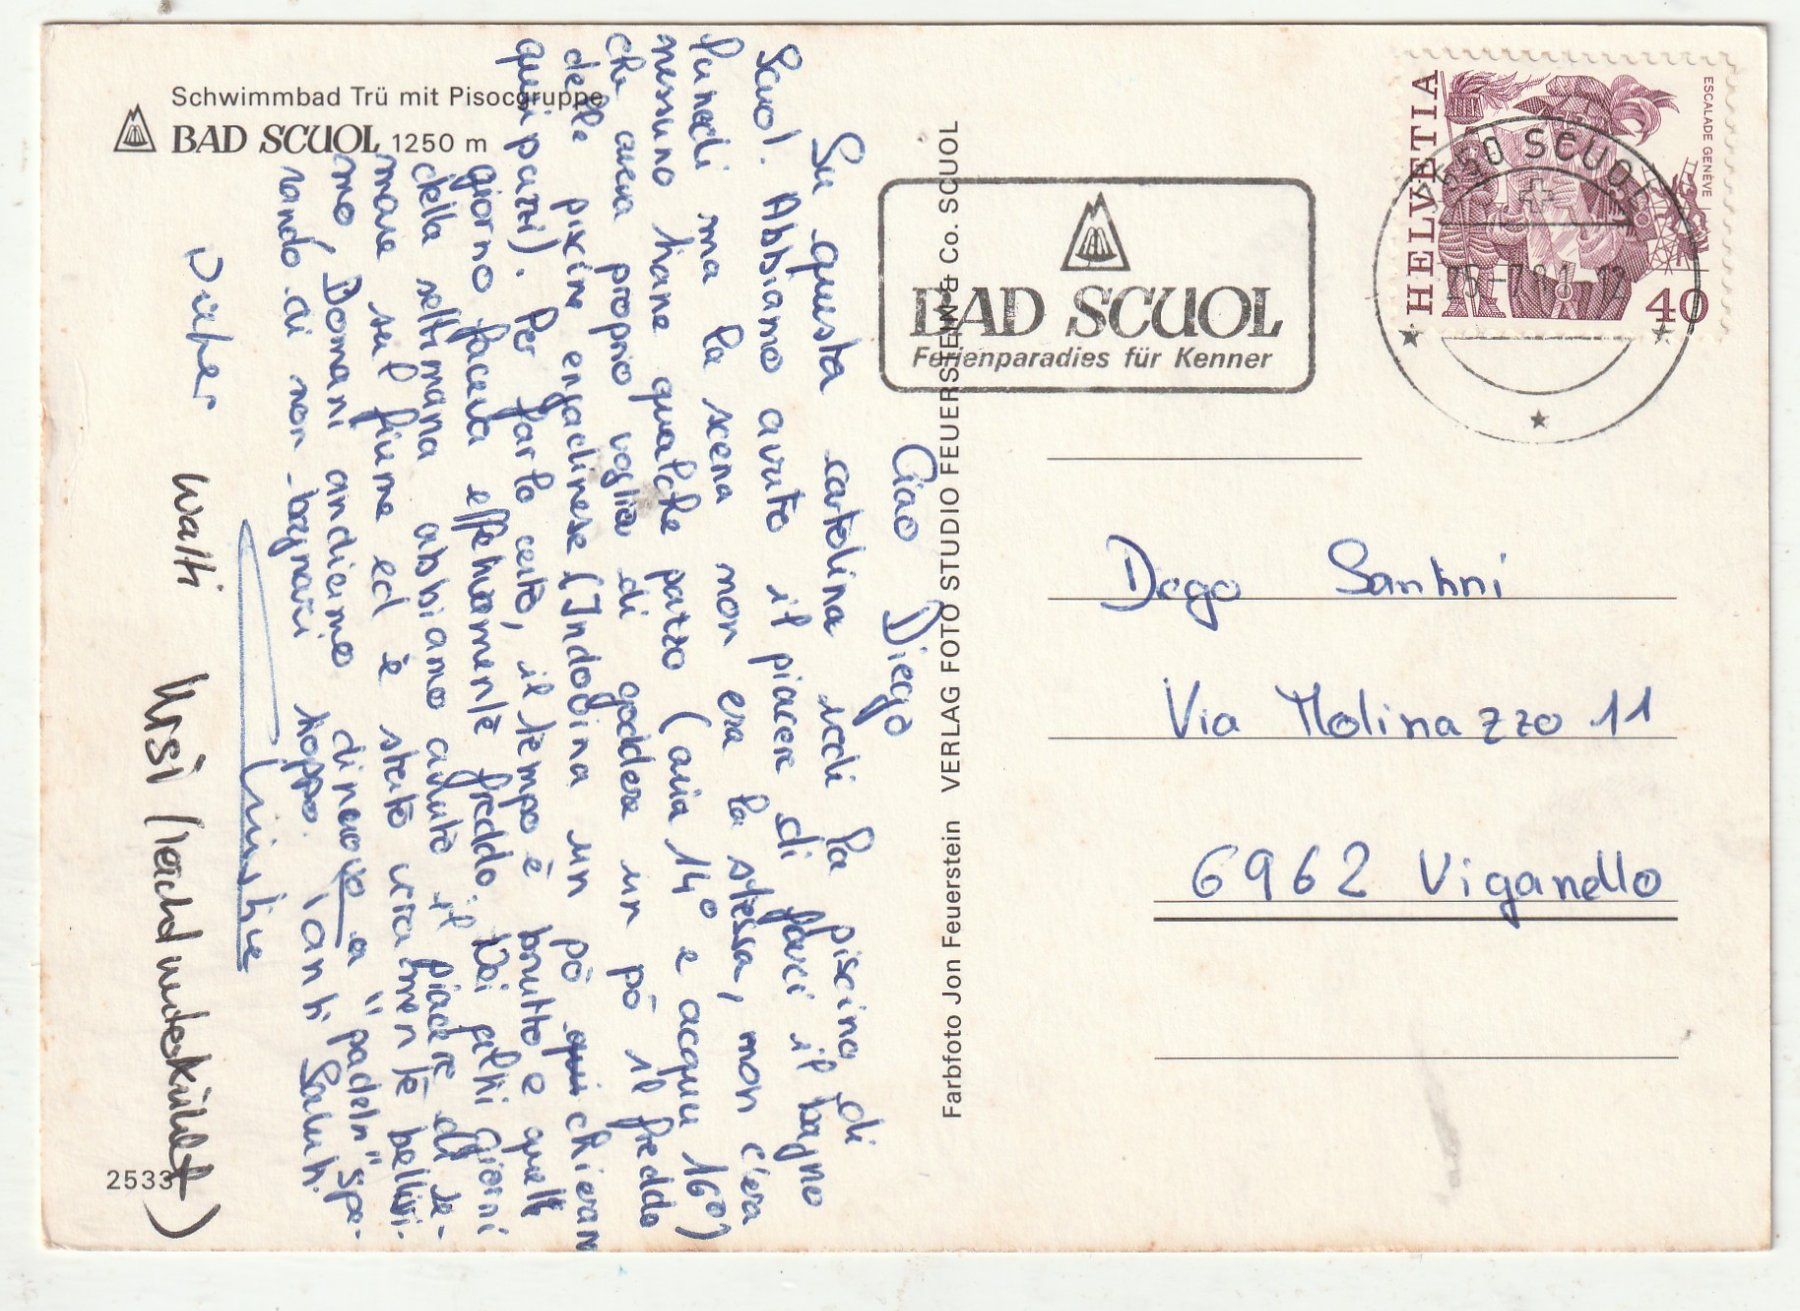 Schwimmbad Trü mit Pisocgruppe
BAD SCUOL 1250 m
Ciao Diego
Su questa cartolina vedi la piscina di
Scuol. Abbiamo avuto il piacere di farci il bagno
lunedi ma la scena non era la stessa, non c'era
nessuno hane qualche pazzo (aria 14° e acqua 16°)
che aveva proprio voglia di goddere un pò il freddo
delle piscine engadinese (Indovina un pò qui chi eran
quei pazzi). Per farla corta, il tempo è brutto e quell
giorno faceva effettivamente freddo. Nei altri giorni
della settimana abbiamo avuto il piacere di re-
mare sul fiume ed è stato vramente bellissi-
mo, Domani andiamo di nuovo a "padeln" spe-
rando di non bagnarci troppo. Tanti Saluti.
Christine
Walti
Ursi
2533
Farbfoto Jon Feuerstein VERLAG FOTO STUDIO FEUERSTEIN & Co. SCUOL
BAD SCUOL
Ferienparadies für Kenner
HELVETIA
ESCALADE GENÈVE
40
7550 SCUOL
25-7 81 12
Dego Santini
Via Molinazzo 11
6962 Viganello